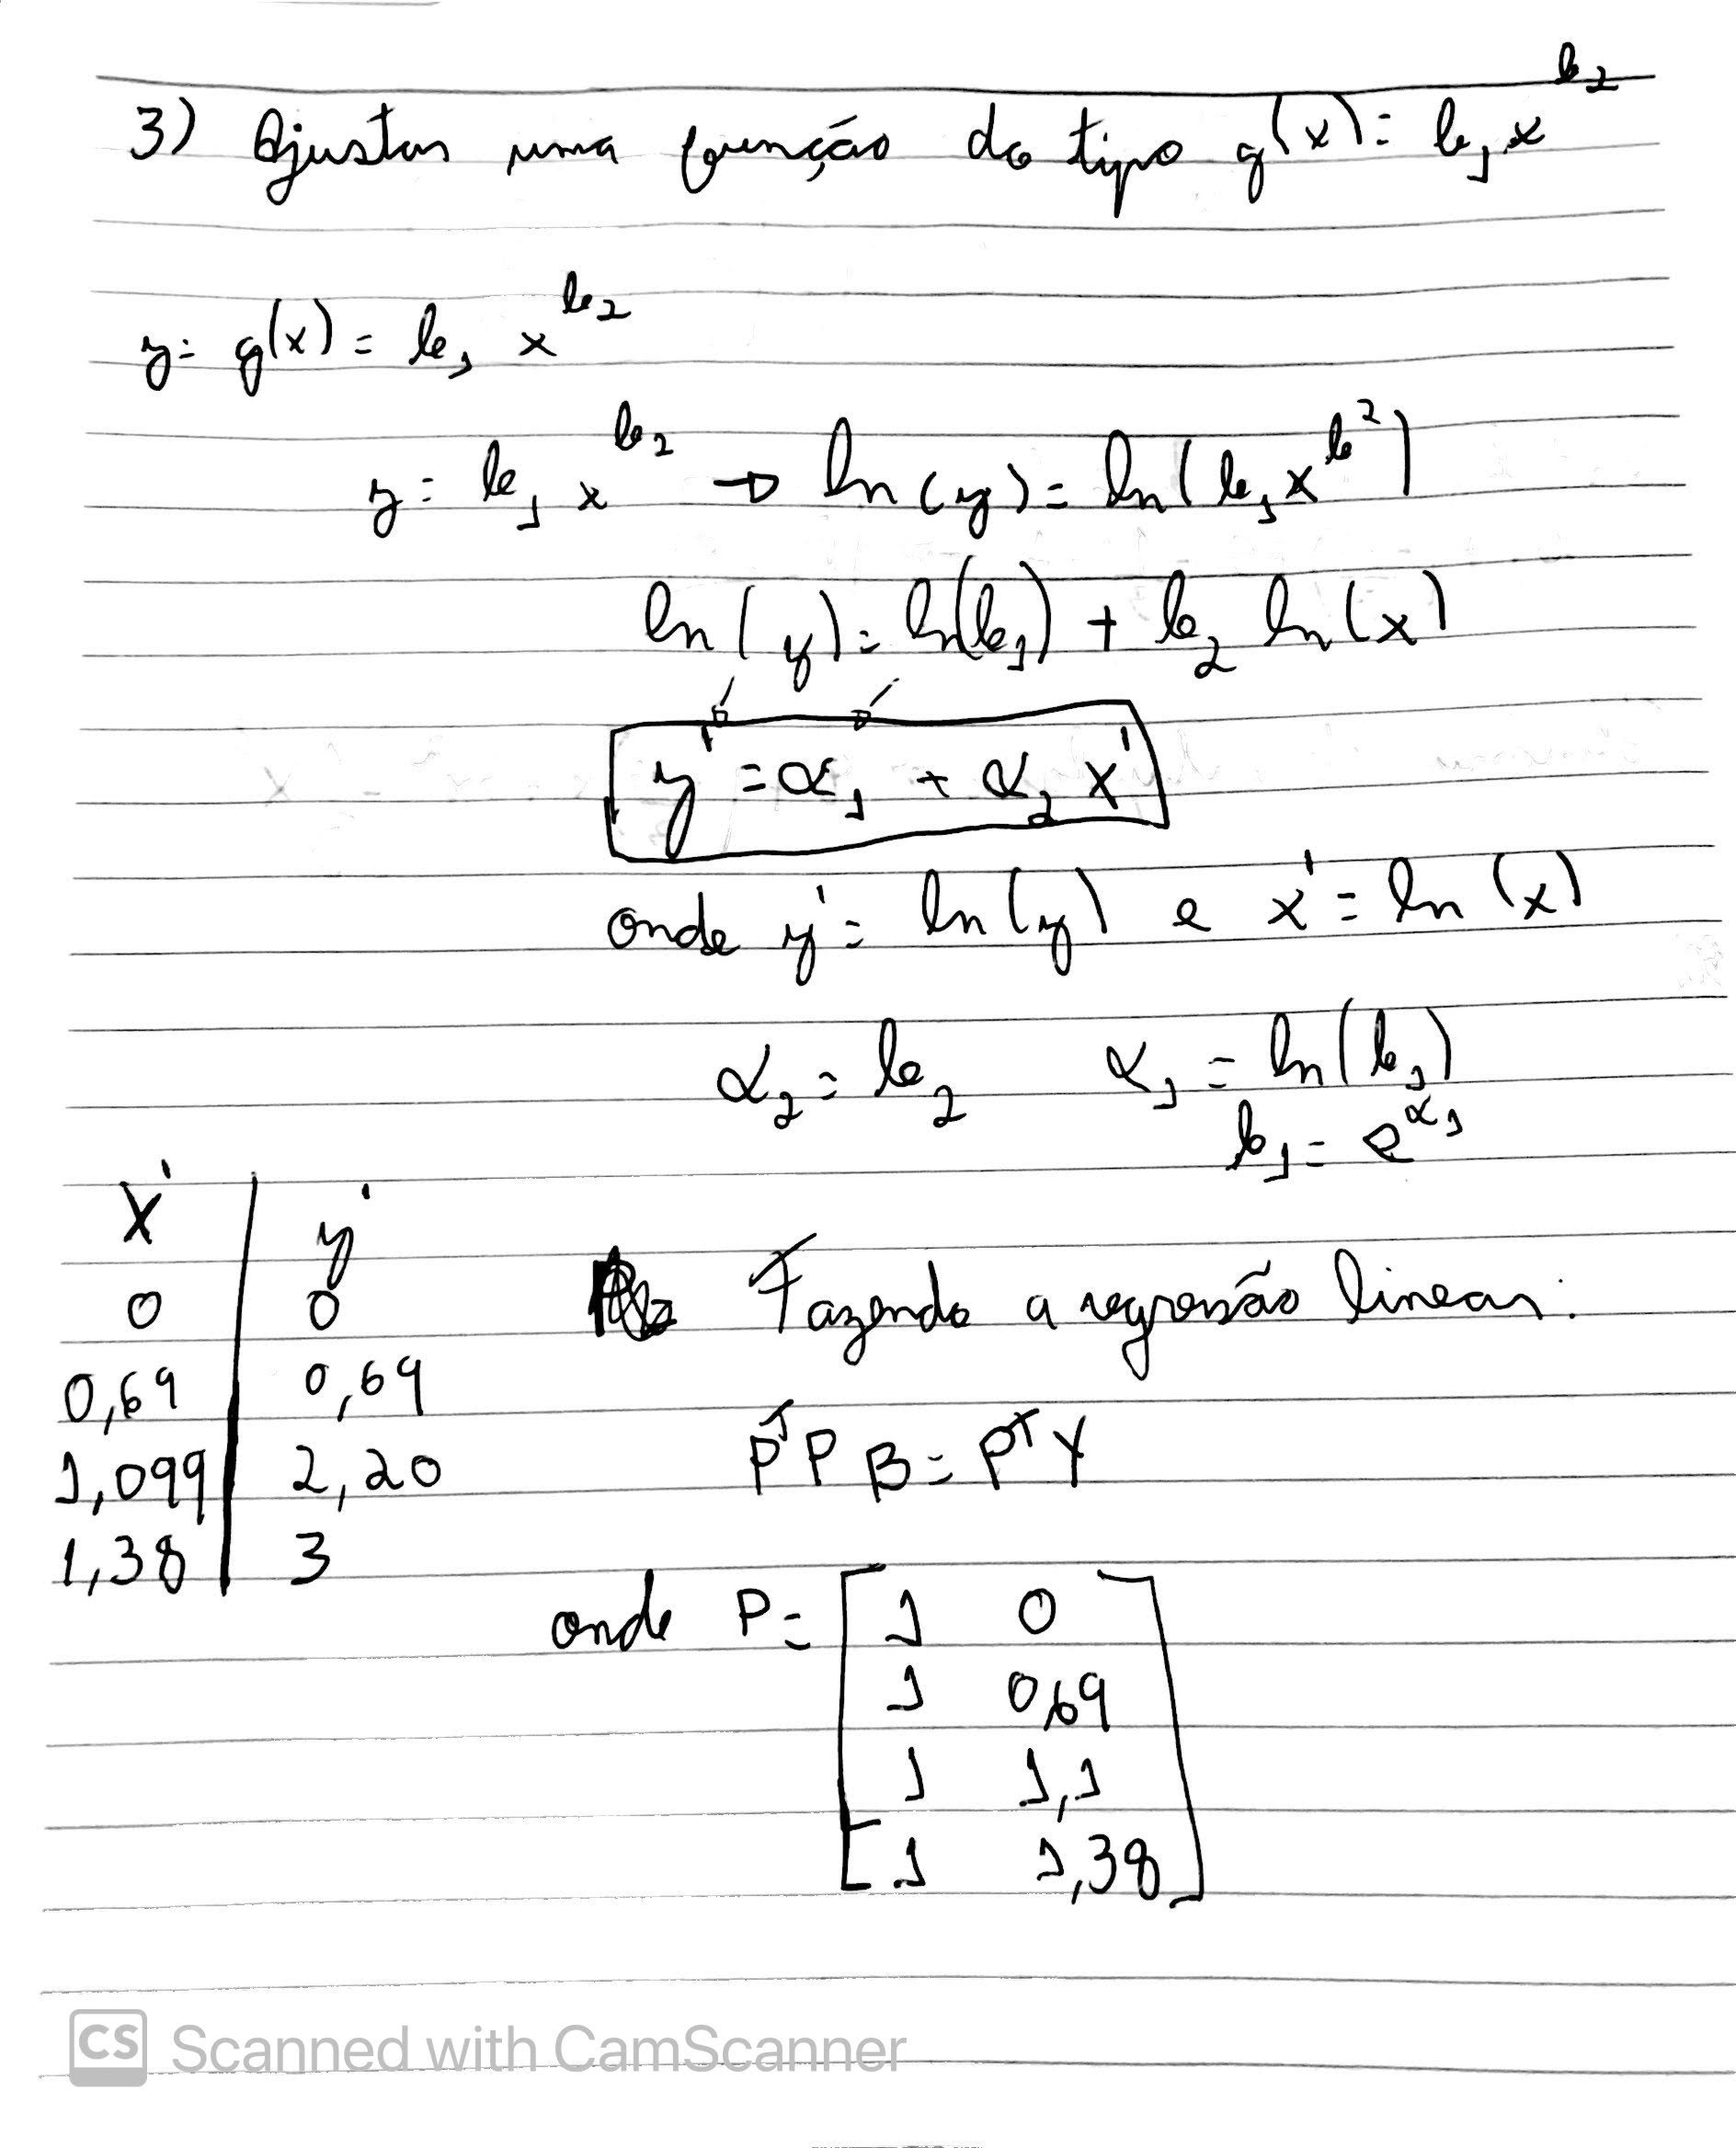 3) Ajustar uma função do tipo g(x) = b₁x^b₂
y = g(x) = b₁ x^b₂
y = b₁ x^b₂ → ln(y) = ln(b₁x^b²)
ln(y) = ln(b₁) + b₂ ln(x)
y' = α₁ + α₂ x'
onde y' = ln(y) e x' = ln(x)
α₂ = b₂ α₁ = ln(b₁)
b₁ = e^α₁
x' y'
0 0
0,69 0,69
1,099 2,20
1,38 3
Fazendo a regressão linear:
PᵀP B = PᵀY
onde P = [1 0
1 0,69
1 1,1
1 1,38]
CS Scanned with CamScanner